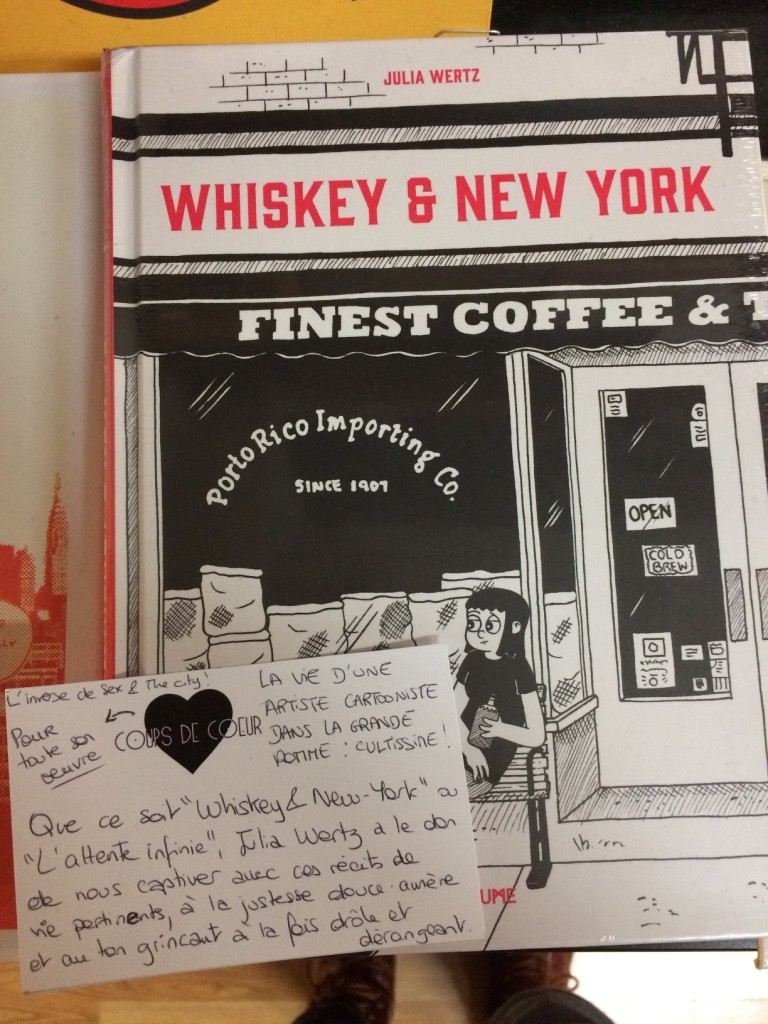 JULIA WERTZ
WHISKEY & NEW YORK
FINEST COFFEE & T
Porto Rico Importing Co.
SINCE 1907
OPEN
COLD
BREW
L'inverse de Sex & The city!
Pour
toute son
oeuvre
COUPS DE COEUR
LA VIE D'UNE
ARTISTE CARTOONISTE
DANS LA GRANDE
POMME : CULTISSIME!
Que ce soit "Whiskey & New-York" ou
"L'attente infinie", Julia Wertz a le don
de nous captiver avec ces récits de
vie pertinents, à la justesse douce-amère
et au ton grincant à la fois drôle et
dérangeant.
UME
LLY